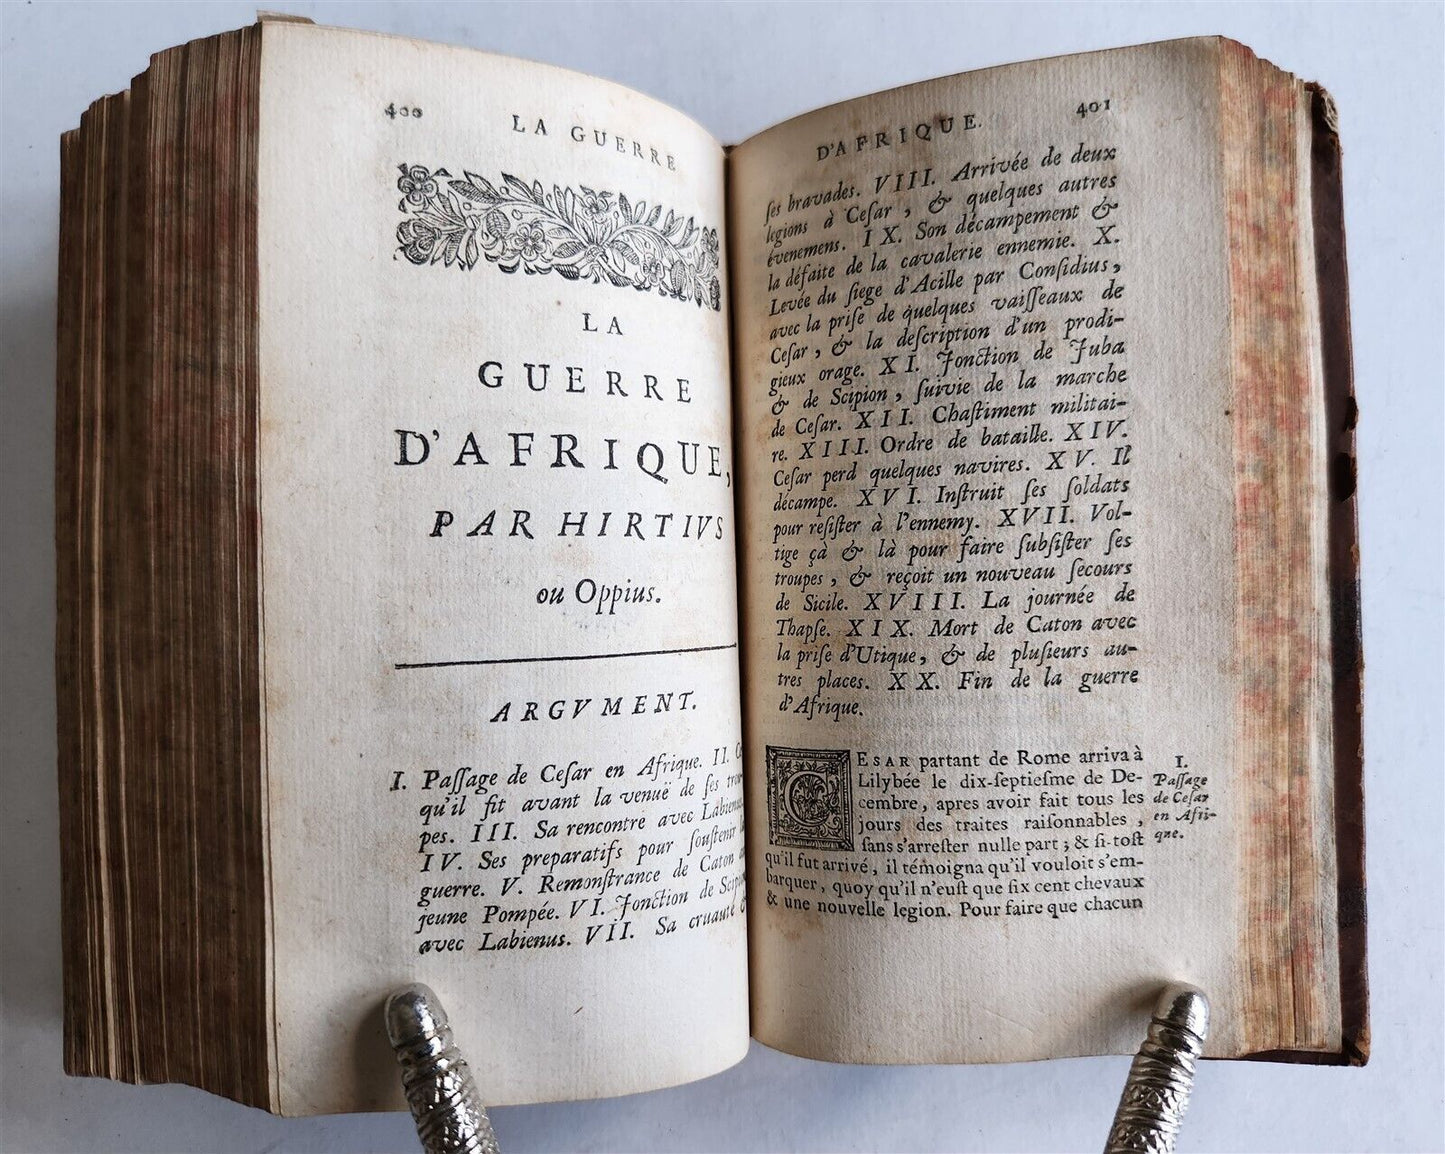 400
LA GUERRE
LA
GUERRE
D'AFRIQUE,
PAR HIRTIVS
ou Oppius.
ARGVMENT.
I. Paſſage de Ceſar en Afrique. II.
qu'il fit avant la venuë de ſes
pes. III. Sa rencontre avec
IV. Ses preparatifs pour ſouſtenir
guerre. V. Remonſtrance de Caton
jeune Pompée. VI. Jonction de
avec Labienus. VII. Sa cruauté
D'AFRIQUE. 401
ſes bravades. VIII. Arrivée de deux
legions à Ceſar, & quelques autres
évenemens. IX. Son décampement &
la défaite de la cavalerie ennemie. X.
Levée du ſiege d'Acille par Conſidius,
avec la priſe de quelques vaiſſeaux de
Ceſar, & la deſcription d'un prodi-
gieux orage. XI. Jonction de Juba
& de Scipion, ſuivie de la marche
de Ceſar. XII. Chaſtiment militai-
re. XIII. Ordre de bataille. XIV.
Ceſar perd quelques navires. XV. Il
décampe. XVI. Inſtruit ſes ſoldats
pour reſiſter à l'ennemy. XVII. Vol-
tige çà & là pour faire ſubſiſter ſes
troupes, & reçoit un nouveau ſecours
de Sicile. XVIII. La journée de
Thapſe. XIX. Mort de Caton avec
la priſe d'Utique, & de pluſieurs au-
tres places. XX. Fin de la guerre
d'Afrique.
CESAR partant de Rome arriva à
Lilybée le dix-ſeptieſme de De-
cembre, apres avoir fait tous les
jours des traites raiſonnables,
ſans s'arreſter nulle part; & ſi-toſt
qu'il fut arrivé, il témoigna qu'il vouloit s'em-
barquer, quoy qu'il n'euſt que ſix cent chevaux
& une nouvelle legion. Pour faire que chacun
I.
Paſſage
de Ceſar
en Afri-
que.